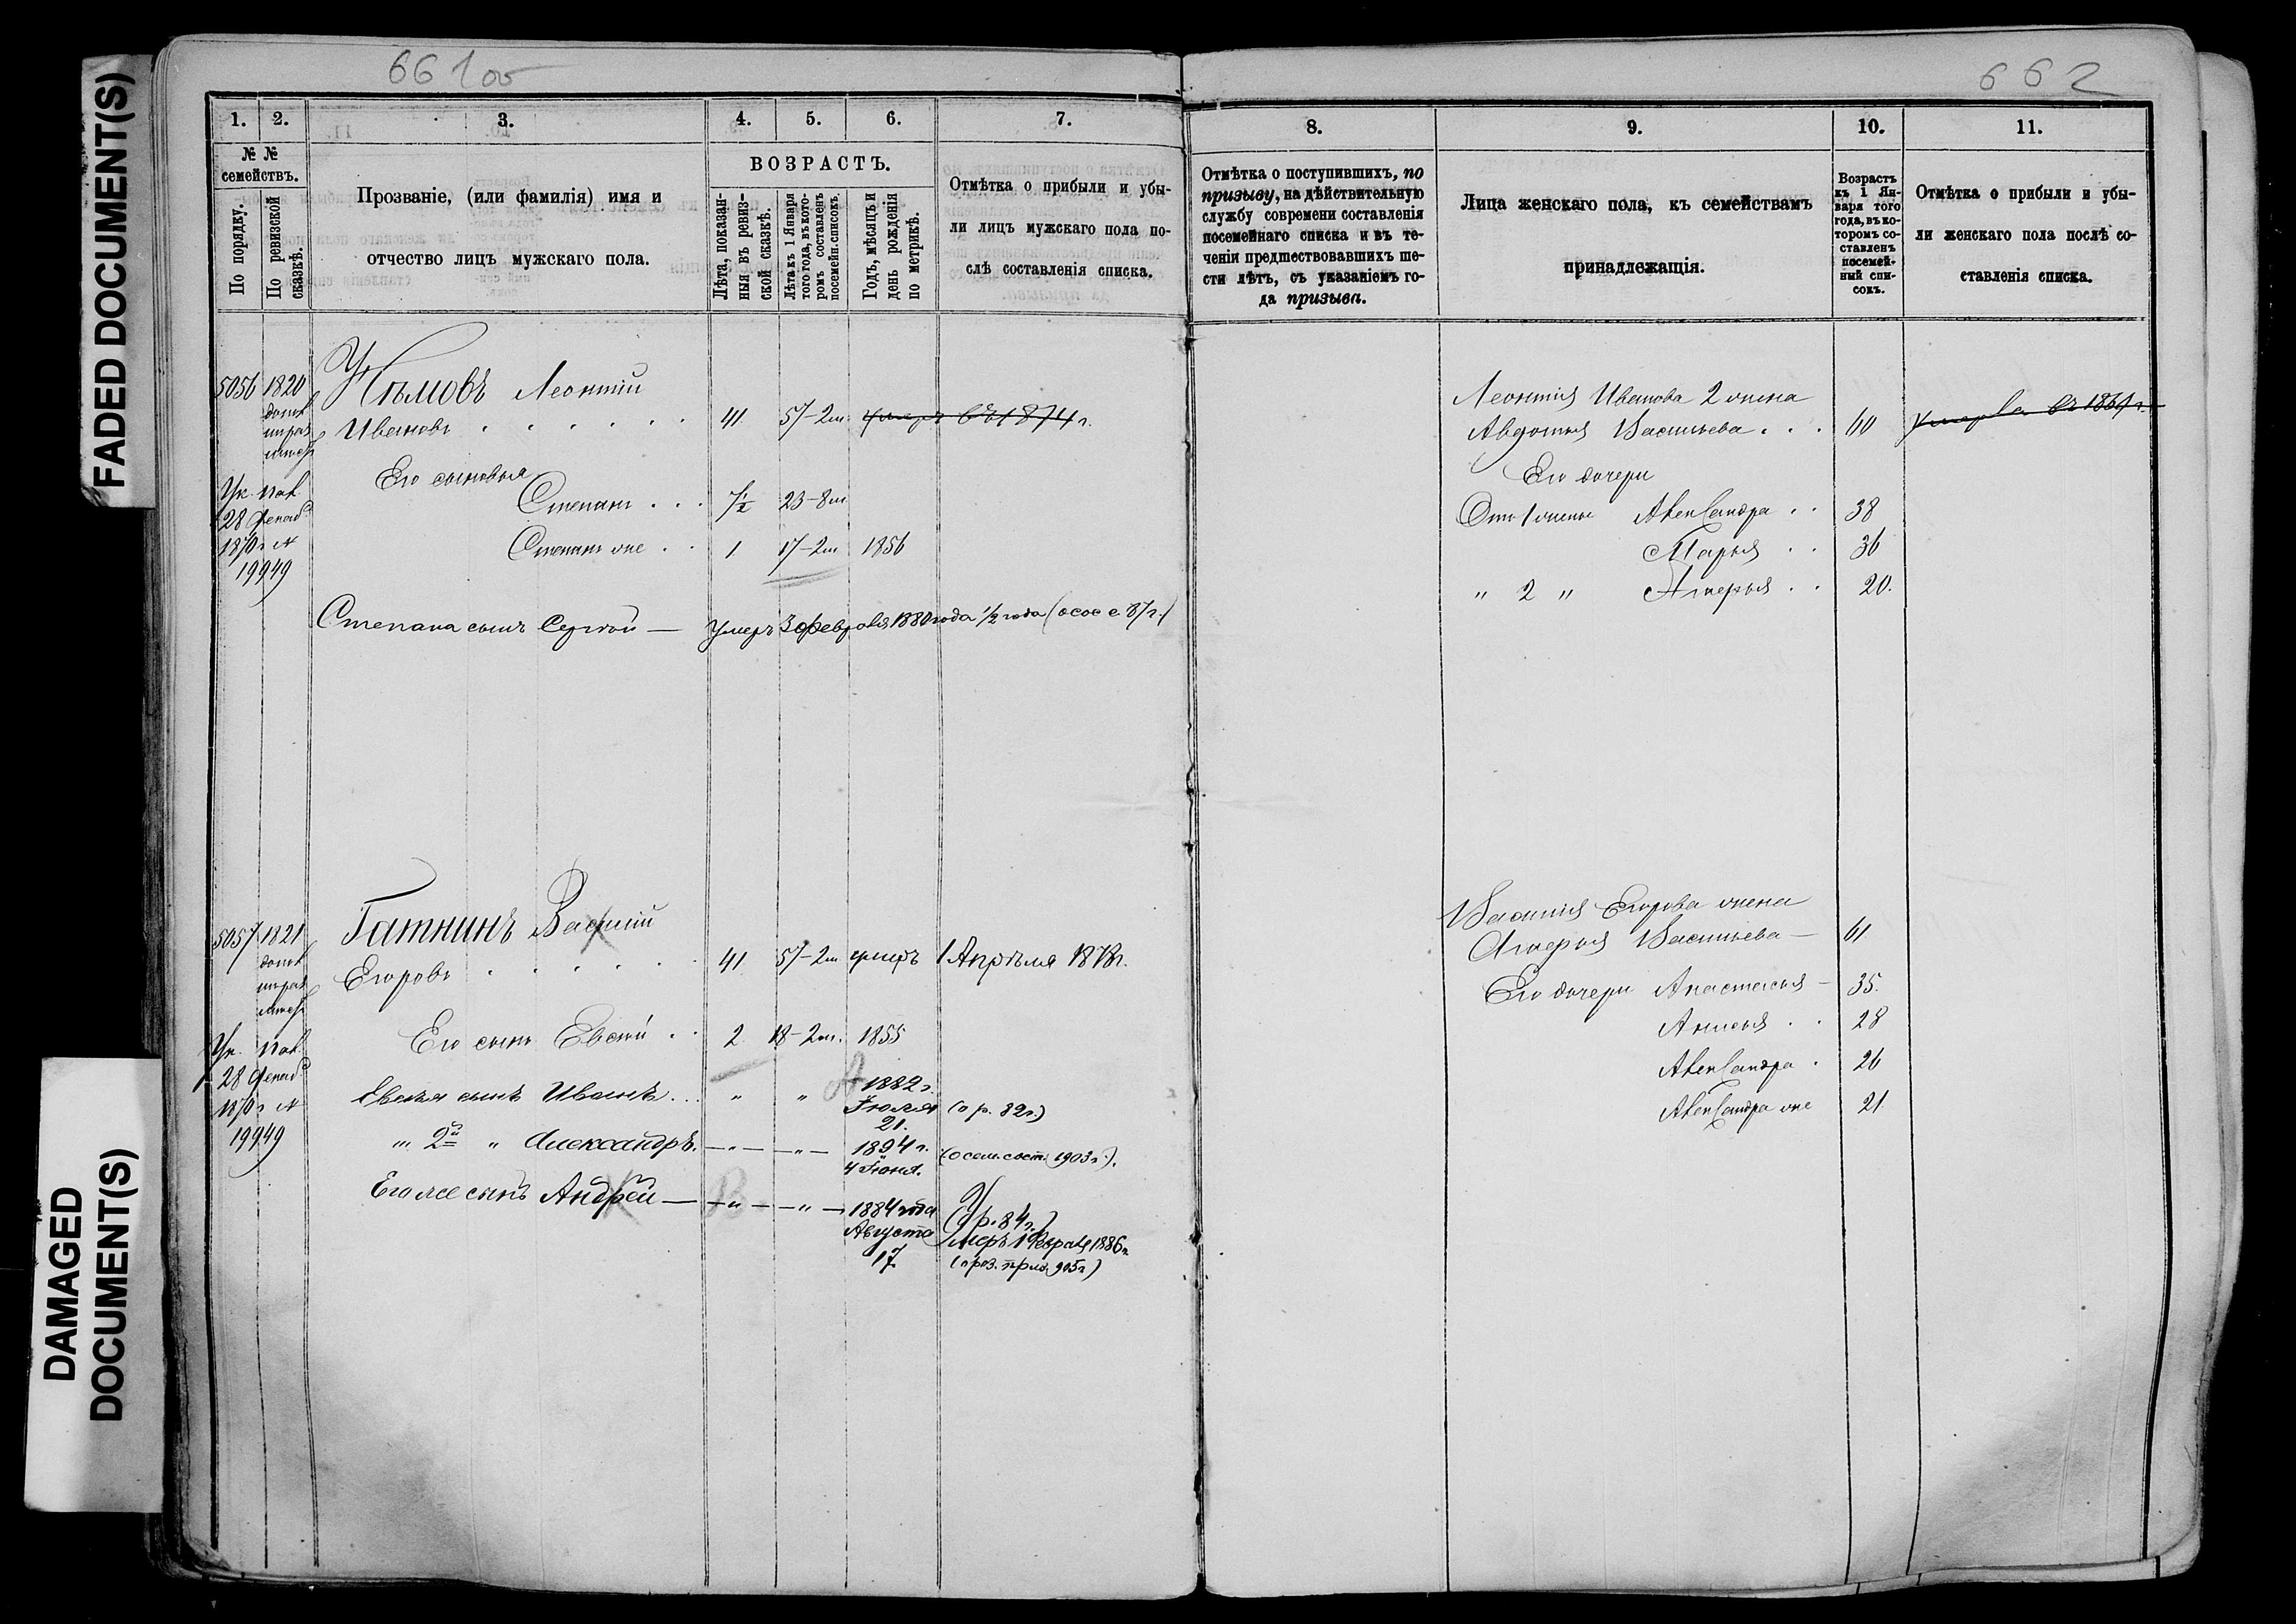 FADED DOCUMENT(S)
DAMAGED
DOCUMENT(S)
661 об
1. 2. 3. 4. 5. 6. 7.
№ №
семействъ.
По порядку.
По ревизской
сказкѣ.
Прозваніе, (или фамилія) имя и
отчество лицъ мужскаго пола.
ВОЗРАСТЪ.
Лѣта, показан-
ныя въ ревиз-
ской сказкѣ.
Лѣта къ 1 Января
того года, въ кото-
ромъ составленъ
посемейн. списокъ.
Годъ, мѣсяцъ и
день рожденія
по метрикѣ.
Отмѣтка о прибыли и убы-
ли лицъ мужскаго пола по-
слѣ составленія списка.
5056 1820 Леонтій
Ивановъ 41 57-2м. умеръ въ 1874 г.
Его сыновья
Степанъ 7½ 23-8м
28
1870 г №
Степанъ же 1 17-2м 1856
19949
Степана сынъ Сергѣй — Умеръ 3 февраля 1880 года ½ года
5057 1821 Гатнинъ Василій
Егоровъ 41 57-2м умеръ 1 Апрѣля 1878г.
Его сынъ Евсѣй 2 18-2м. 1855
28
1870 г №
Евсѣя сынъ Иванъ " " 1882 г. Іюля 21. (о р. 82г.)
19949
" 2й " Александръ. — " — — " — 1894 г. 4 Іюня. (1903 г.).
Его же сынъ Андрей — — " — — " — 1884 года Августа 17 (о р. 84 г.)
Умеръ 1 Февраля 1886 г.
662
8. 9. 10. 11.
Отмѣтка о поступившихъ, по
призыву, на дѣйствительную
службу современи составленія
посемейнаго списка и въ те-
ченіи предшествовавшихъ ше-
сти лѣтъ, съ указаніемъ го-
да призыва.
Лица женскаго пола, къ семействамъ
принадлежащія.
Возрастъ
къ 1 Ян-
варя того
года, въ ко-
торомъ со-
ставленъ
посемей-
ный спи-
сокъ.
Отмѣтка о прибыли и убы-
ли женскаго пола послѣ со-
ставленія списка.
Леонтія Иванова 2 жена
Авдотья Васильева 60 умерла въ
Его дочери
Отъ 1 жены Александра 38
Марья 36
" 2 " 20.
Василія Егорова жена
Васильева — 61
Его дочери Анастасья — 35.
Анисья 28
Александра 26
Александра же 21